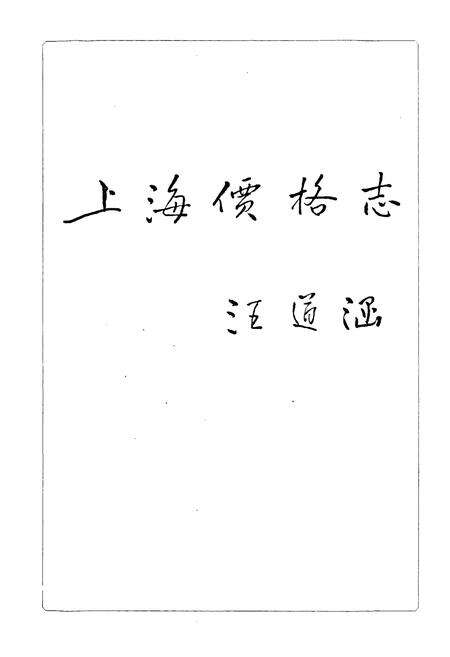 上海價格志
汪道涵